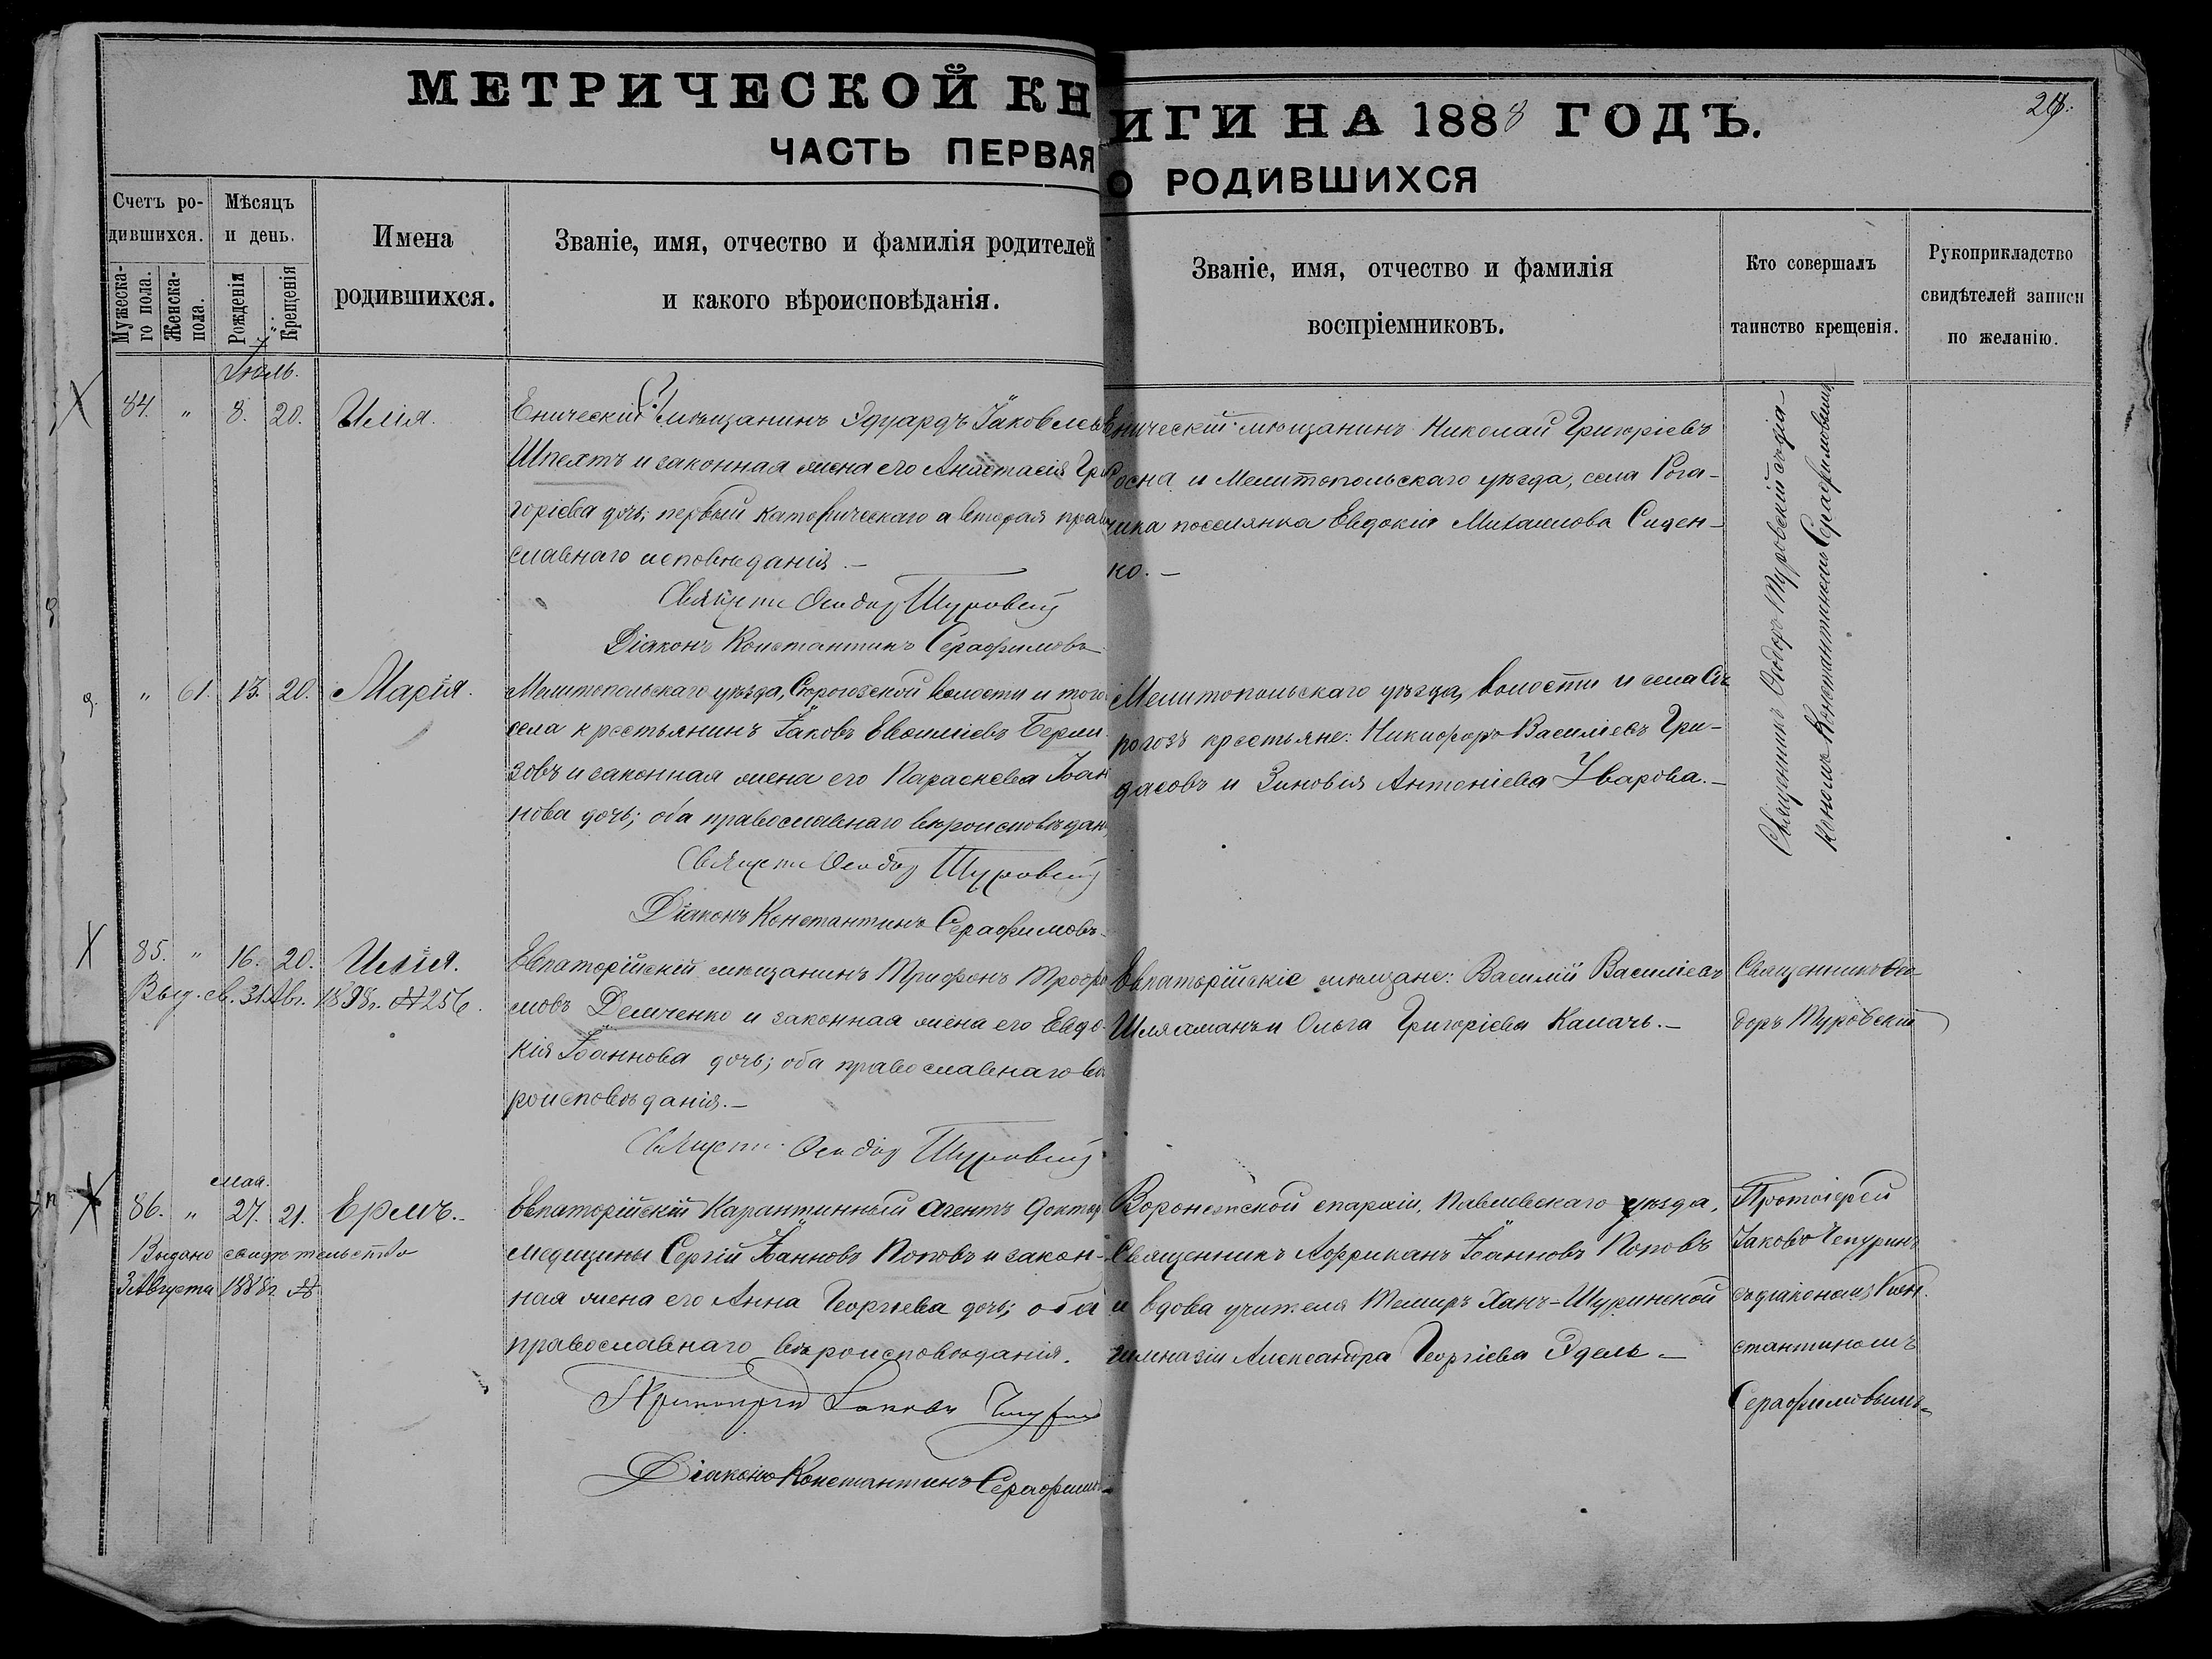 МЕТРИЧЕСКОЙ КНИГИ НА 1888 ГОДЪ.
ЧАСТЬ ПЕРВАЯ О РОДИВШИХСЯ
Счетъ ро-
дившихся.
Мужеска-
го пола.
Женска-
пола.
Мѣсяцъ
и день.
Рожденія
Крещенія
Имена
родившихся.
Званіе, имя, отчество и фамилія родителей
и какого вѣроисповѣданія.
Званіе, имя, отчество и фамилія
воспріемниковъ.
Кто совершалъ
таинство крещенія.
Рукоприкладство
свидѣтелей записи
по желанію.
Іюль.
84. " 8. 20. Илія.
Еническій мѣщанинъ Эдуардъ Іаковлевъ
Шпехтъ и законная жена его Анастасія Гри
горіева дочь; первый католическаго а вторая право
славнаго исповѣданія.–
Священ. Ѳеодоръ Туровскій
Діаконъ Константинъ Серафимовъ
Еническій мѣщанинъ Николай Григоріевъ
и Мелитопольскаго уѣзда, села Рога-
чика поселянка Евдокія Михаилова Сиден-
ко.–
Священникъ Ѳеодоръ Туровскій съ діа-
кономъ Константиномъ Серафимовымъ
" 61. 13. 20. Марія.
Мелитопольскаго уѣзда, Сѣрогозской волости и того
села крестьянинъ Іаковъ Евсиліевъ
зовъ и законная жена его Параскева Іоан
нова дочь; оба православнаго вѣроисповѣдан
Священ. Ѳеодоръ Туровскій
Діаконъ Константинъ Серафимовъ
Мелитопольскаго уѣзда, волости и села Сѣ
рогозъ крестьяне: Никифоръ Василіевъ Гри-
дасовъ и Зиновія Антоніева Уварова.–
85. " 16. 20. Илія.
Выд. св. 31 Авг. 1898г. № 256.
Евпаторійскій мѣщанинъ Трифонъ Трофи
мовъ Демченко и законная жена его Евдо-
кія Іоаннова дочь; оба православнаго вѣ
роисповѣданія.–
Священ. Ѳеодоръ Туровскій
Евпаторійскіе мѣщане: Василій Василіевъ
Шляаманъ и Ольга Григоріева Калачъ.–
Священникъ Ѳео-
доръ Туровскій
мая.
86. " 27. 21. Ермъ.–
Выдано свидѣтельство
3 Августа 1888г. №
Евпаторійскій Карантинный Агентъ Докторъ
медицины Сергій Іоанновъ Поповъ и закон-
ная жена его Анна Георгіева дочь; оба
православнаго вѣроисповѣданія.
Протоіерей Іаковъ Чепуринъ
Діаконъ Константинъ Серафимовъ
Воронежской епархіи, Павловскаго уѣзда,
Священникъ Африканъ Іоанновъ Поповъ
и вдова учителя Темиръ Ханъ-Шуринской
гимназіи Александра Георгіева Эдель–
Протоіерей
Іаковъ Чепуринъ
съ діакономъ Кон-
стантиномъ
Серафимовымъ